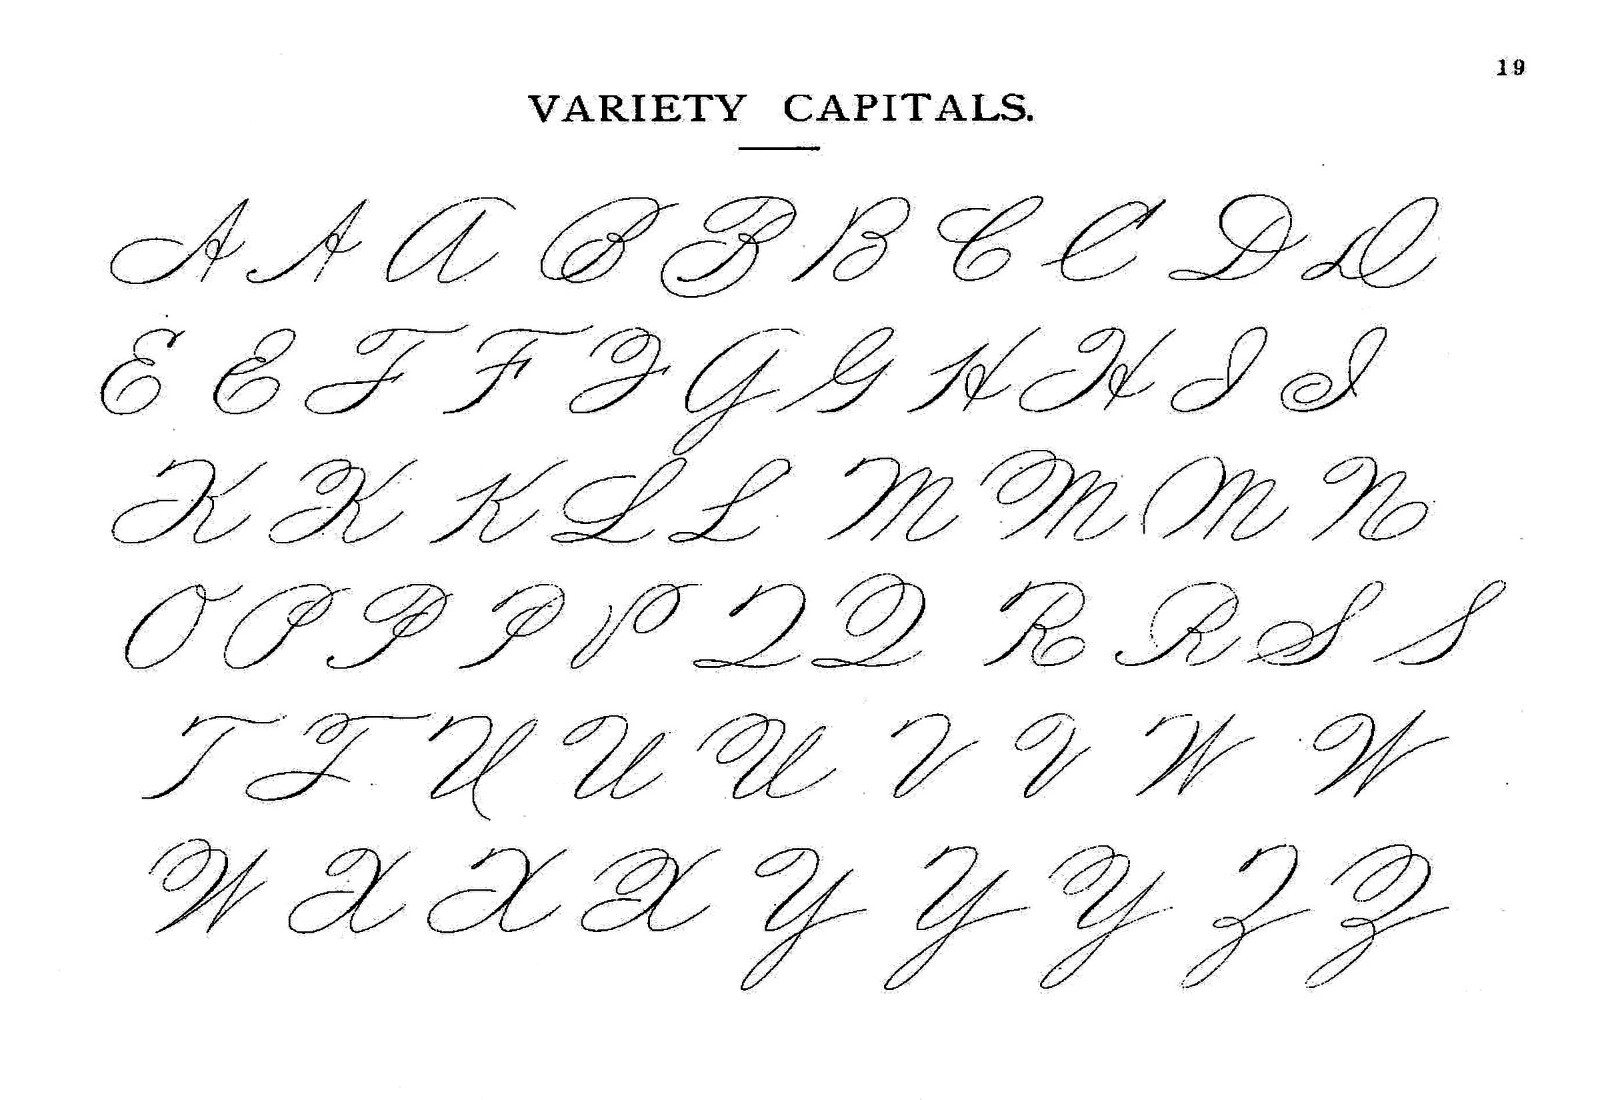 19
VARIETY CAPITALS.
A A A B B B C C D D
E E F F F G G H H I I
K K K L L M M M N
O P P P P Q Q R R S S
T T U U U V V W W
W X X X Y Y Y Z Z